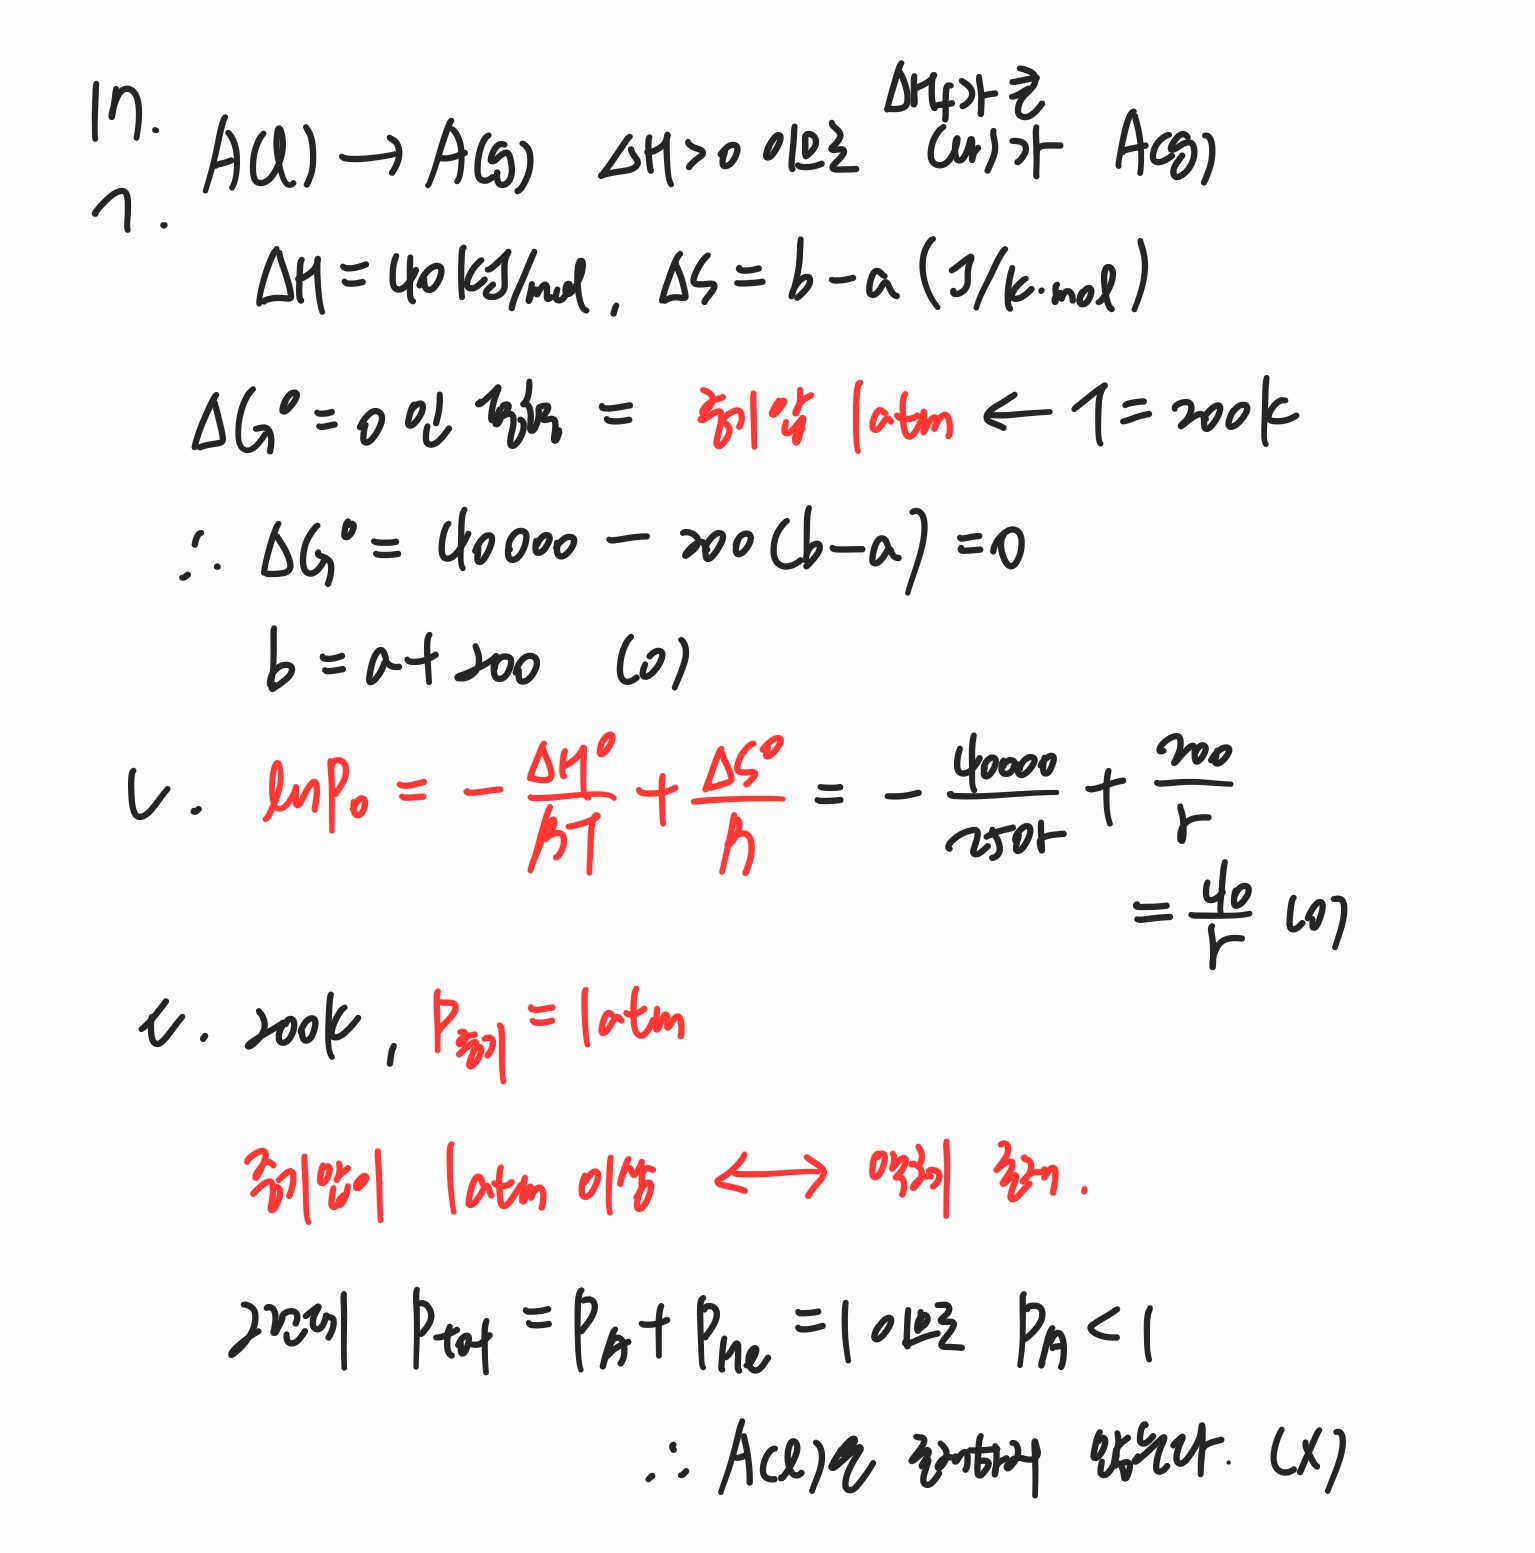 17.
ΔHf가 큰
A(l) → A(g) ΔH>0 이므로 (나)가 A(g)
ㄱ.
ΔH = 40 kJ/mol, ΔS = b-a (J/K·mol)
ΔG° = 0 인 = 증기압 1atm ← T = 200K
∴ ΔG° = 40000 - 200(b-a) = 0
b = a+200 (o)
ㄴ. lnP₀ = - ΔH°/RT + ΔS°/R = - 40000/250r + 200/r
= 40/r (o)
ㄷ. 200K, P증기 = 1atm
증기압이 1atm 이상 ↔ 액체 존재.
Ptot = PA + PHe = 1 이므로 PA < 1
∴ A(l)은 존재하지 않는다. (X)